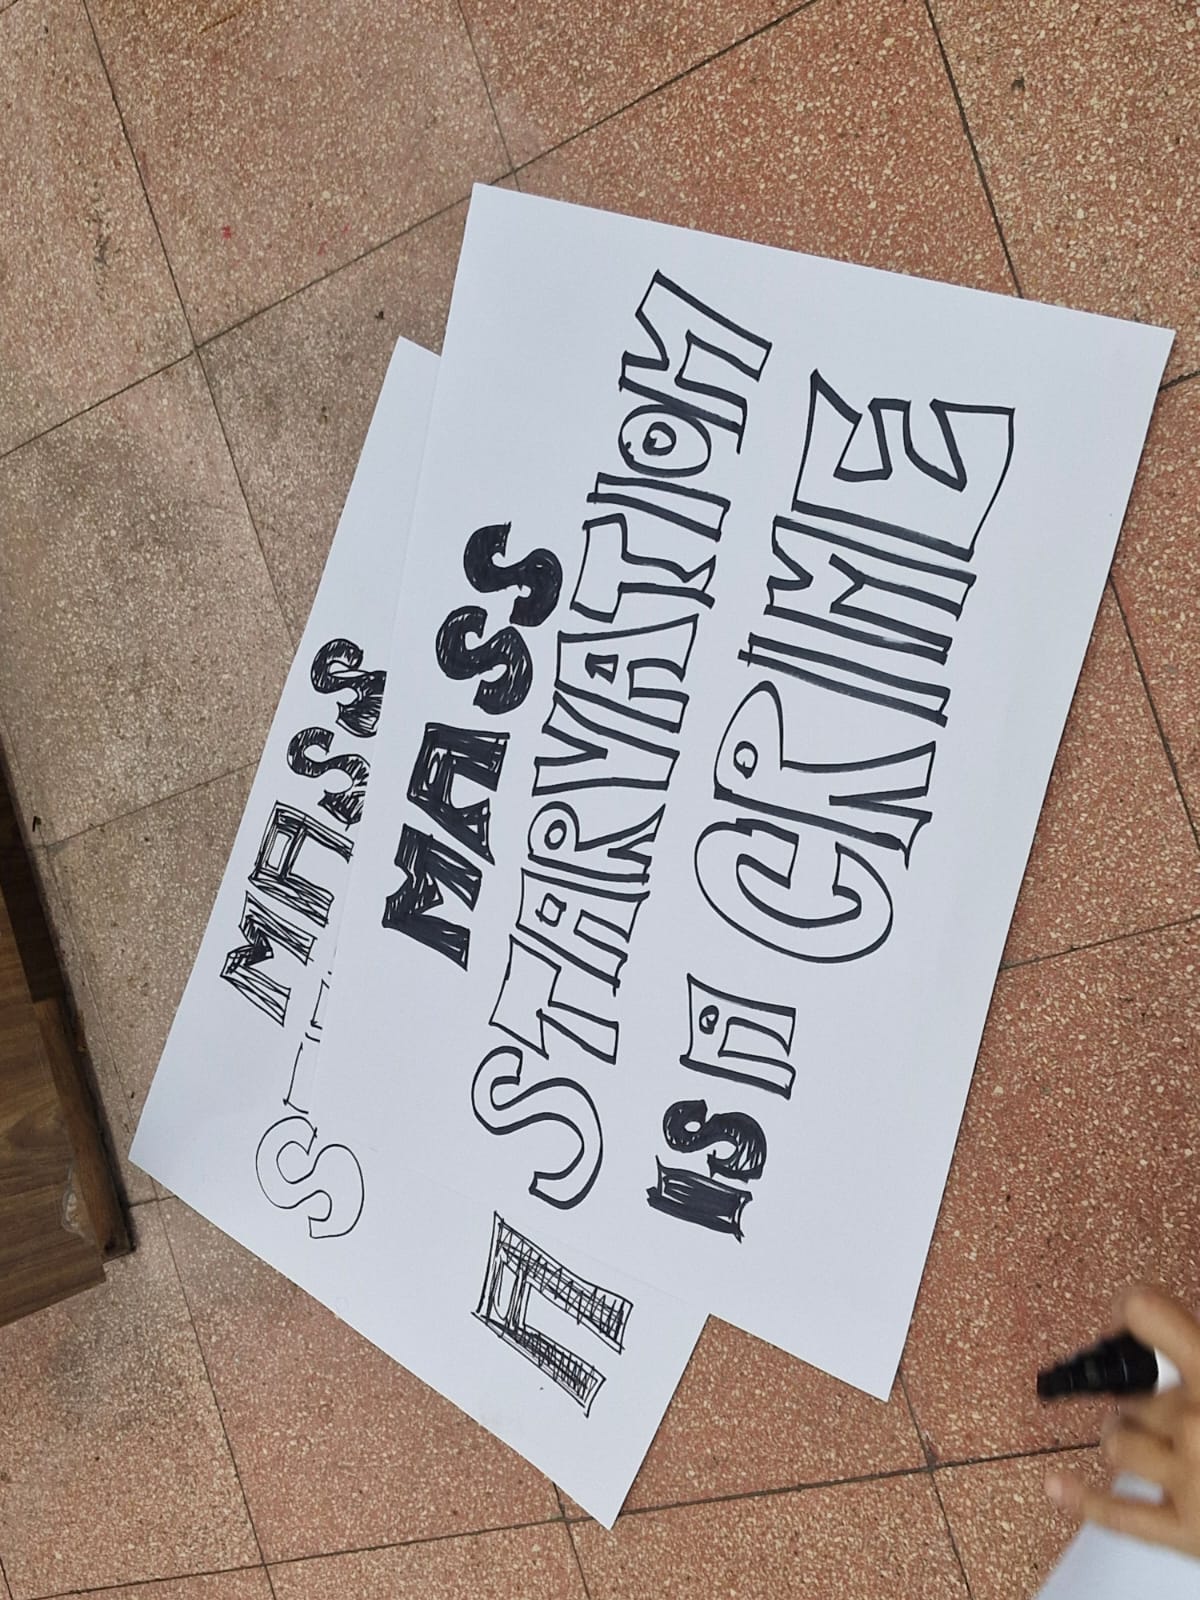 MASS
STARVATION
IS A CRIME
MASS
S
A